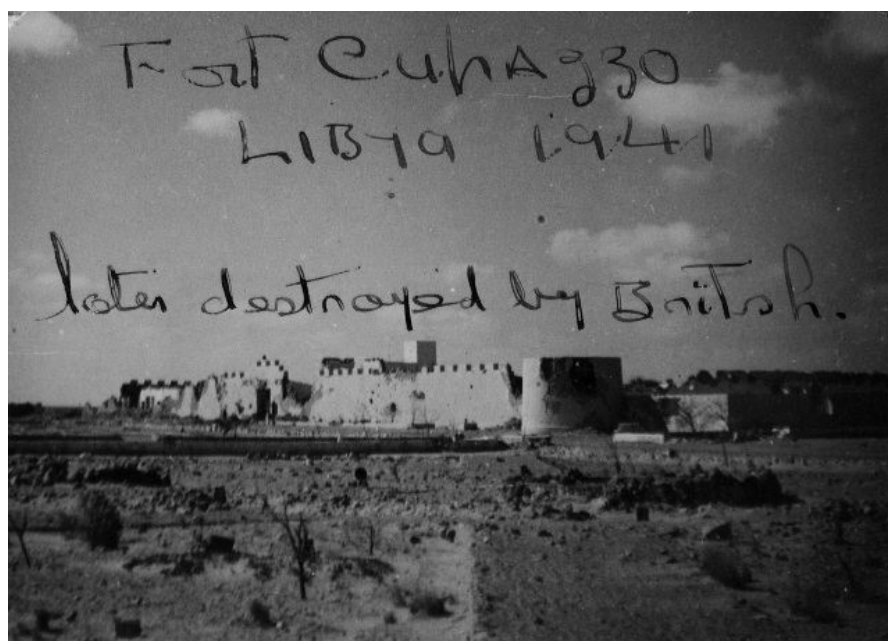 Fort CuhAgzo
LIBYa 1941
later destroyed by British.